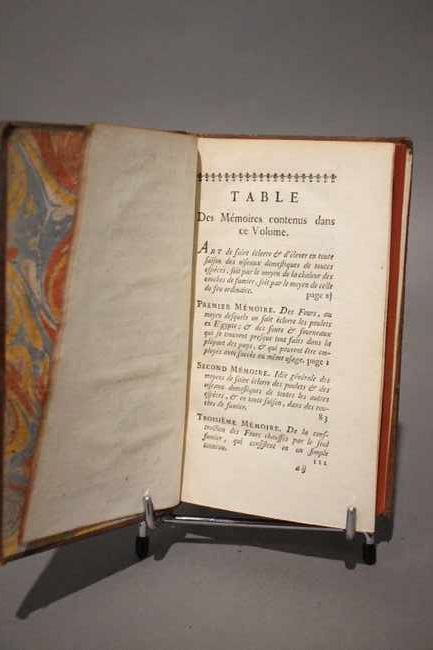 TABLE
Des Mémoires contenus dans
ce Volume.
ART de faire éclorre & d'élever en toute
saison des oiseaux domestiques de toutes
espèces, soit par le moyen de la chaleur des
couches de fumier, soit par le moyen de celle
du feu ordinaire. page
PREMIER MÉMOIRE. Des Fours, au
moyen desquels on fait éclorre les poulets
en Egypte; & des fours & fourneaux
qui se trouvent presque tout faits dans la
plûpart des pays, & qui peuvent être em-
ployés avec succès au même usage. page 1
SECOND MÉMOIRE. Idée générale des
moyens de faire éclorre des poulets & des
oiseaux domestiques de toutes les autres
espèces, & en toute saison, dans des cou-
ches de fumier. 83
TROISIÈME MÉMOIRE. De la cons-
truction des Fours chauffés par le seul
fumier, qui consistent en un simple
tonneau. 111
a ij